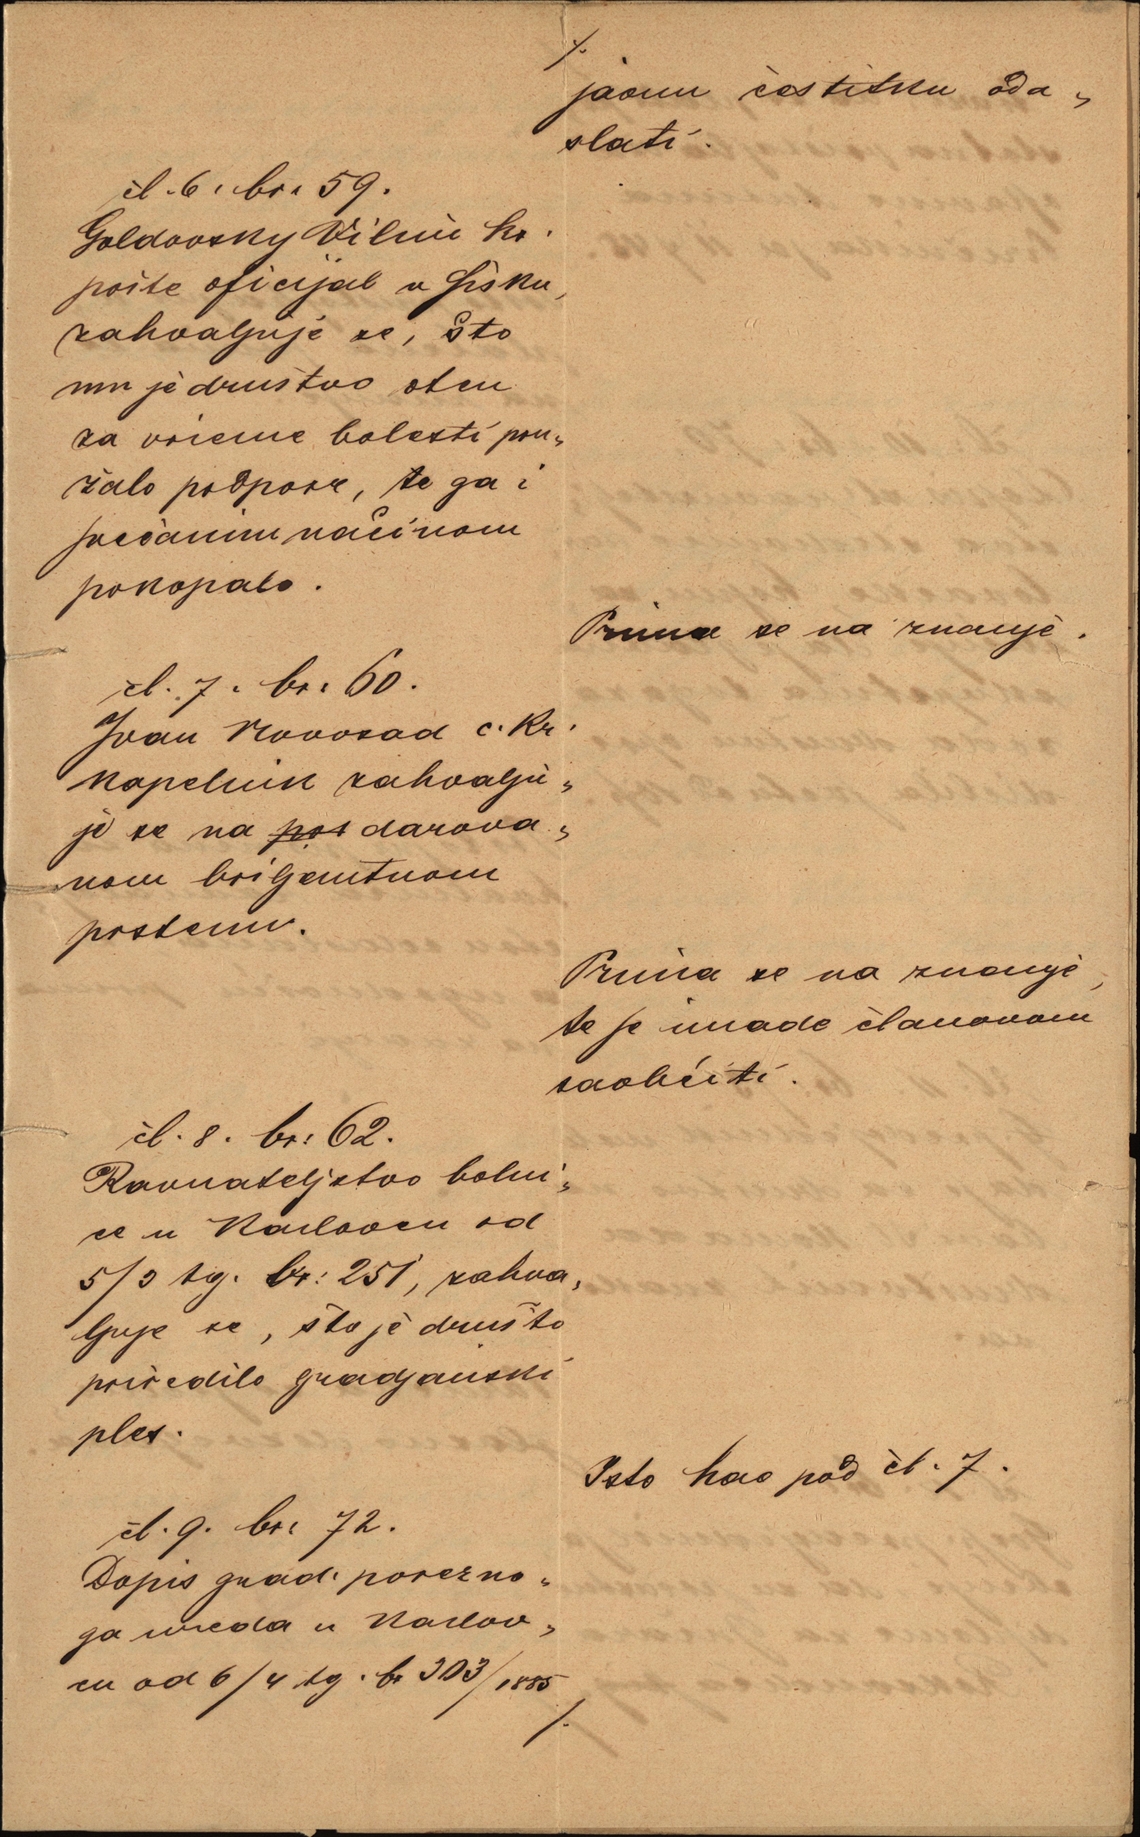 ./.
javnu čestitku oda„
slati.
čl. 6. br. 59.
Goldovsky Vilim kr.
pošte oficijal u Sisku,
zahvaljuje se, što
mu je društvo otcu
za vrieme bolesti pru„
žalo podpore, te ga i
svečanim načinom
pokopalo.
Prima se na znanje.
čl. 7. br. 60.
Ivan Novosad c. kr.
kapelnik zahvalju„
je se na pos darova„
nom briljantnom
prstenu.
Prima se na znanje,
te se imade članovom
saobćiti.
čl. 8. br: 62.
Ravnateljstvo bolni„
ce u Karlovcu od
5/3 tg. br: 251, zahva„
ljuje se, što je društo
priredilo gradjanski
ples.
Isto kao pod čl. 7.
čl. 9. br: 72.
Dopis grad. porezno„
ga ureda u Karlov„
cu od 6/4 tg. br 303/1885
./.